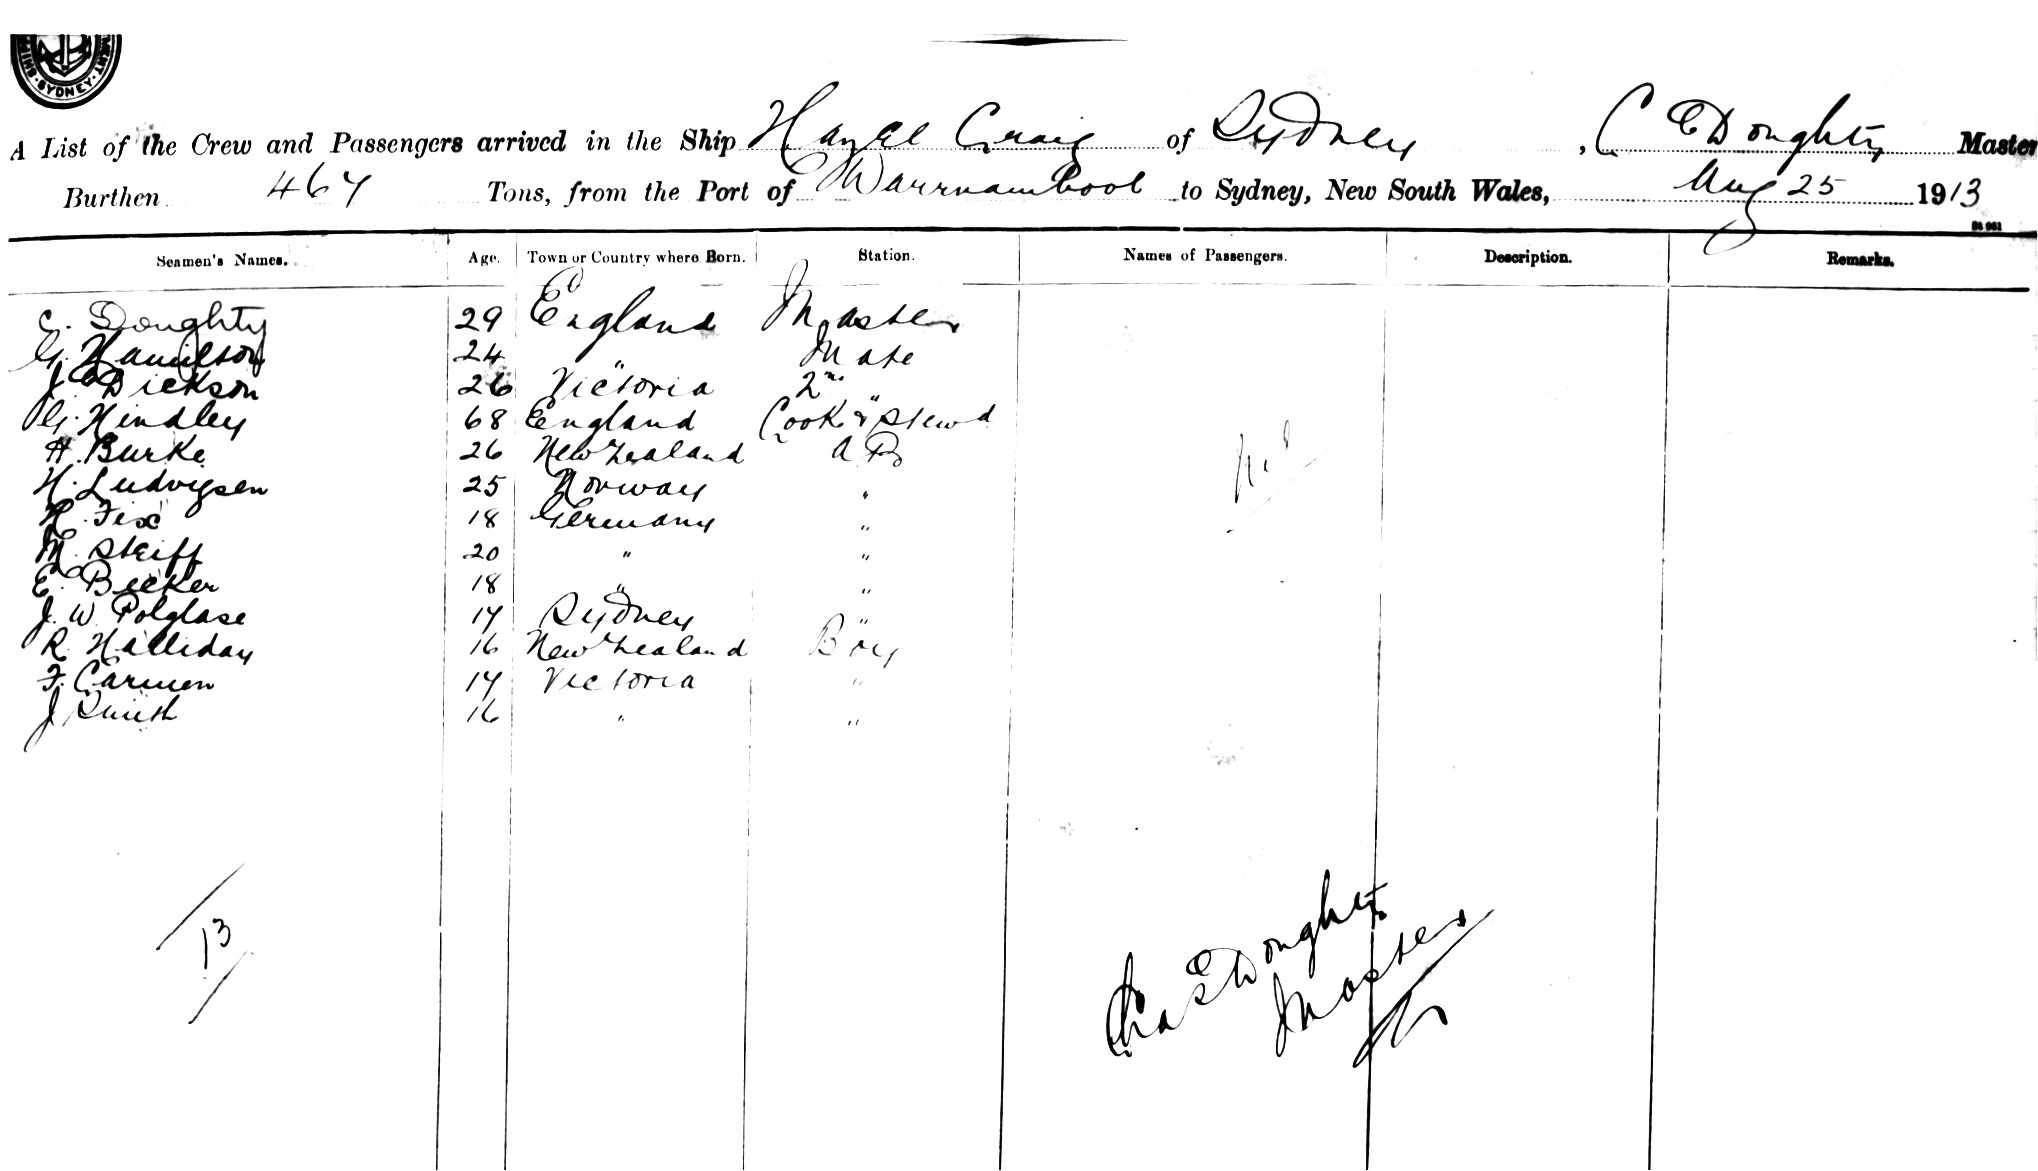 SYDNEY
A List of the Crew and Passengers arrived in the Ship Hazel Craig of Sydney, C E Doughty Master
Burthen 467 Tons, from the Port of Warrnambool to Sydney, New South Wales, Aug 25 1913
Seamen's Names. Age. Town or Country where Born. Station. Names of Passengers. Description. Remarks.
C. Doughty 29 England Master
G. Hamilton 24 " Mate
J. Dickson 26 Victoria 2nd "
G. Hindley 68 England Cook & Stewd
H. Burke 26 New Zealand A B
H. Ludvigsen 25 Norway "
Fix 18 Germany "
M. Steiff 20 " "
E. Becker 18 " "
J. W Polglase 17 Sydney "
R. Halliday 16 New Zealand Boy
F. Carmen 17 Victoria "
J Smith 16 " "
Nil
13
Chas E Doughty
Master